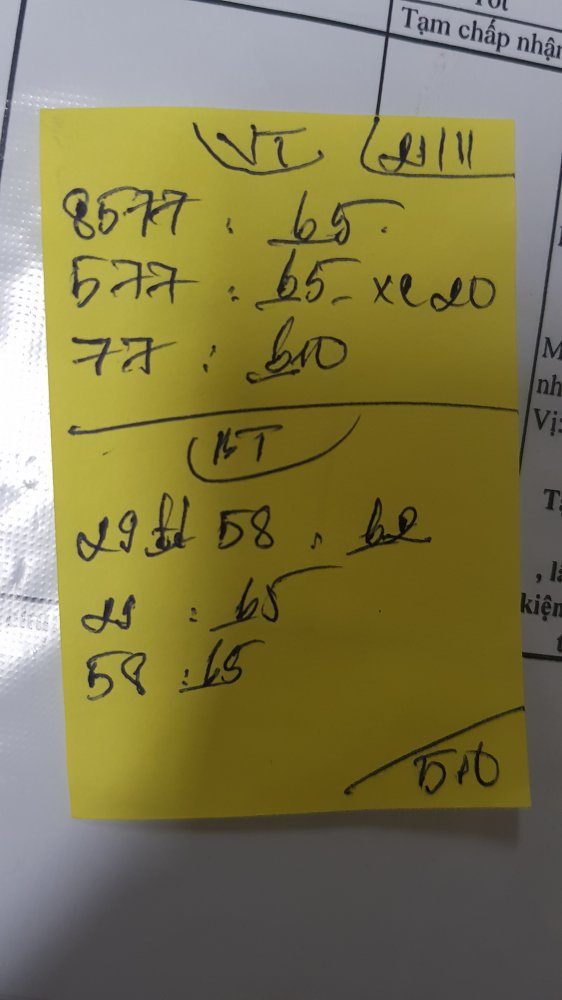 Tốt
Tạm chấp nhận
VT 21/11
8577 : b5.
577 : b5 - x2 20
77 : b10
BT
29 58 : b2
29 : b5
58 : b5
510
M
nh
Vị:
Tạ
, là
kiện
t